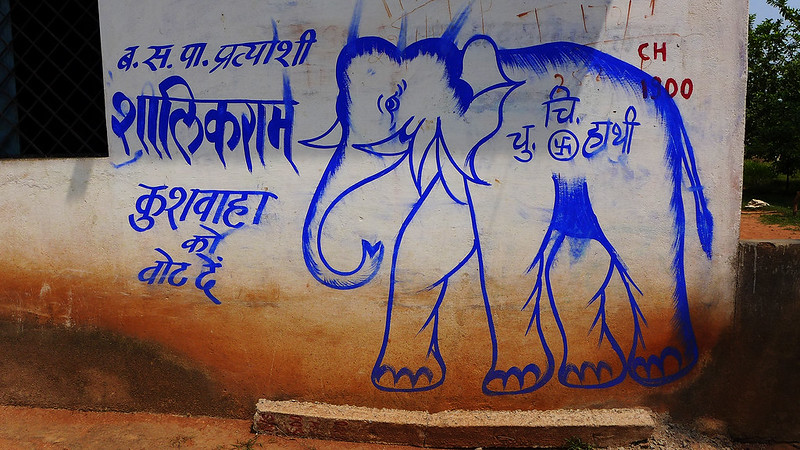 ब.स.पा. प्रत्याशी
शालिकराम
कुशवाहा
को
वोट दें
चु. चि. 卐 हाथी
CH
1300